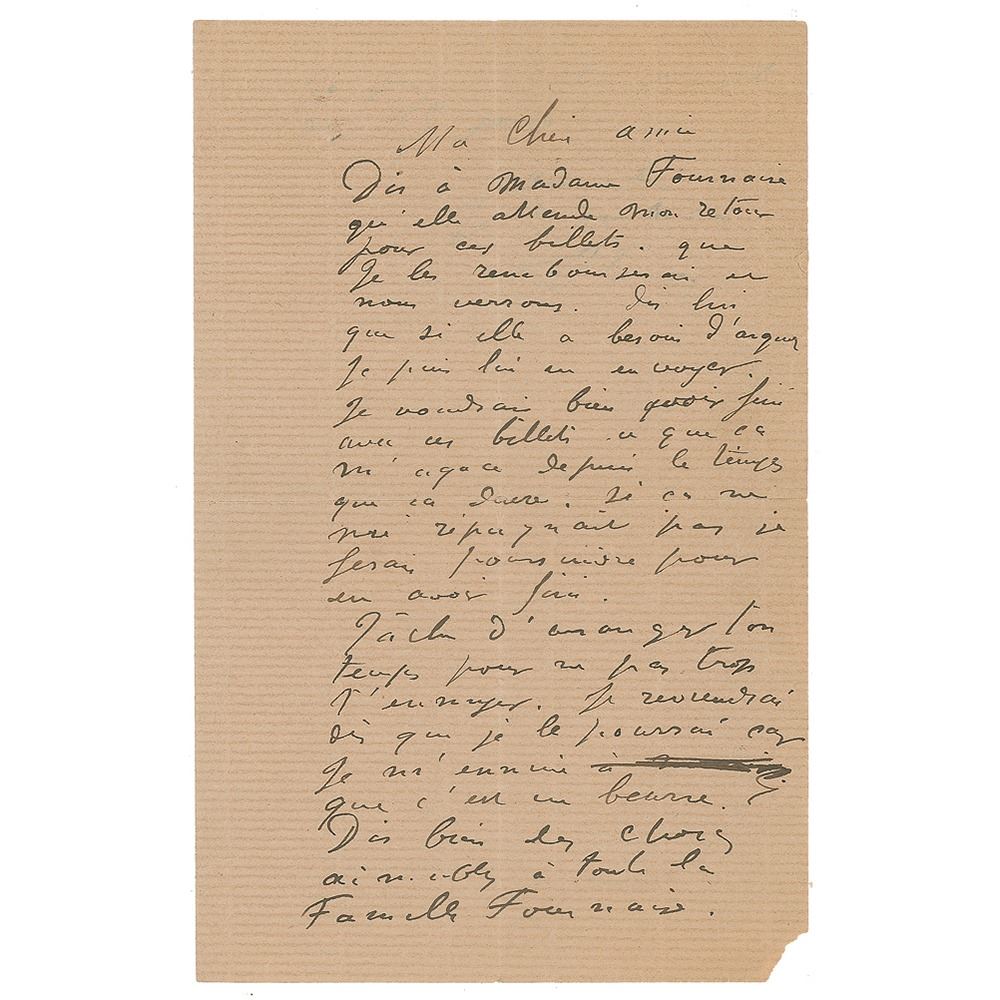 Ma Chère amie
Dis à Madame Fournaise
qu'elle attende mon retour
pour ces billets. que
Je les rembourserai et
nous verrons. dis lui
que si elle a besoin d'argent
Je puis lui en envoyer.
Je voudrais bien avoir fini
avec ces billets que ça
m'agace depuis le temps
que ça dure. Si ça ne
me répugnait pas je
ferais poursuivre pour
en avoir fini.
Tâche d'arranger ton
temps pour ne pas trop
t'ennuyer. Je reviendrai
dès que je le pourrai car
Je m'ennuie à
que c'est un beurre.
Dis bien des choses
aimables à toute la
Famille Fournaise.